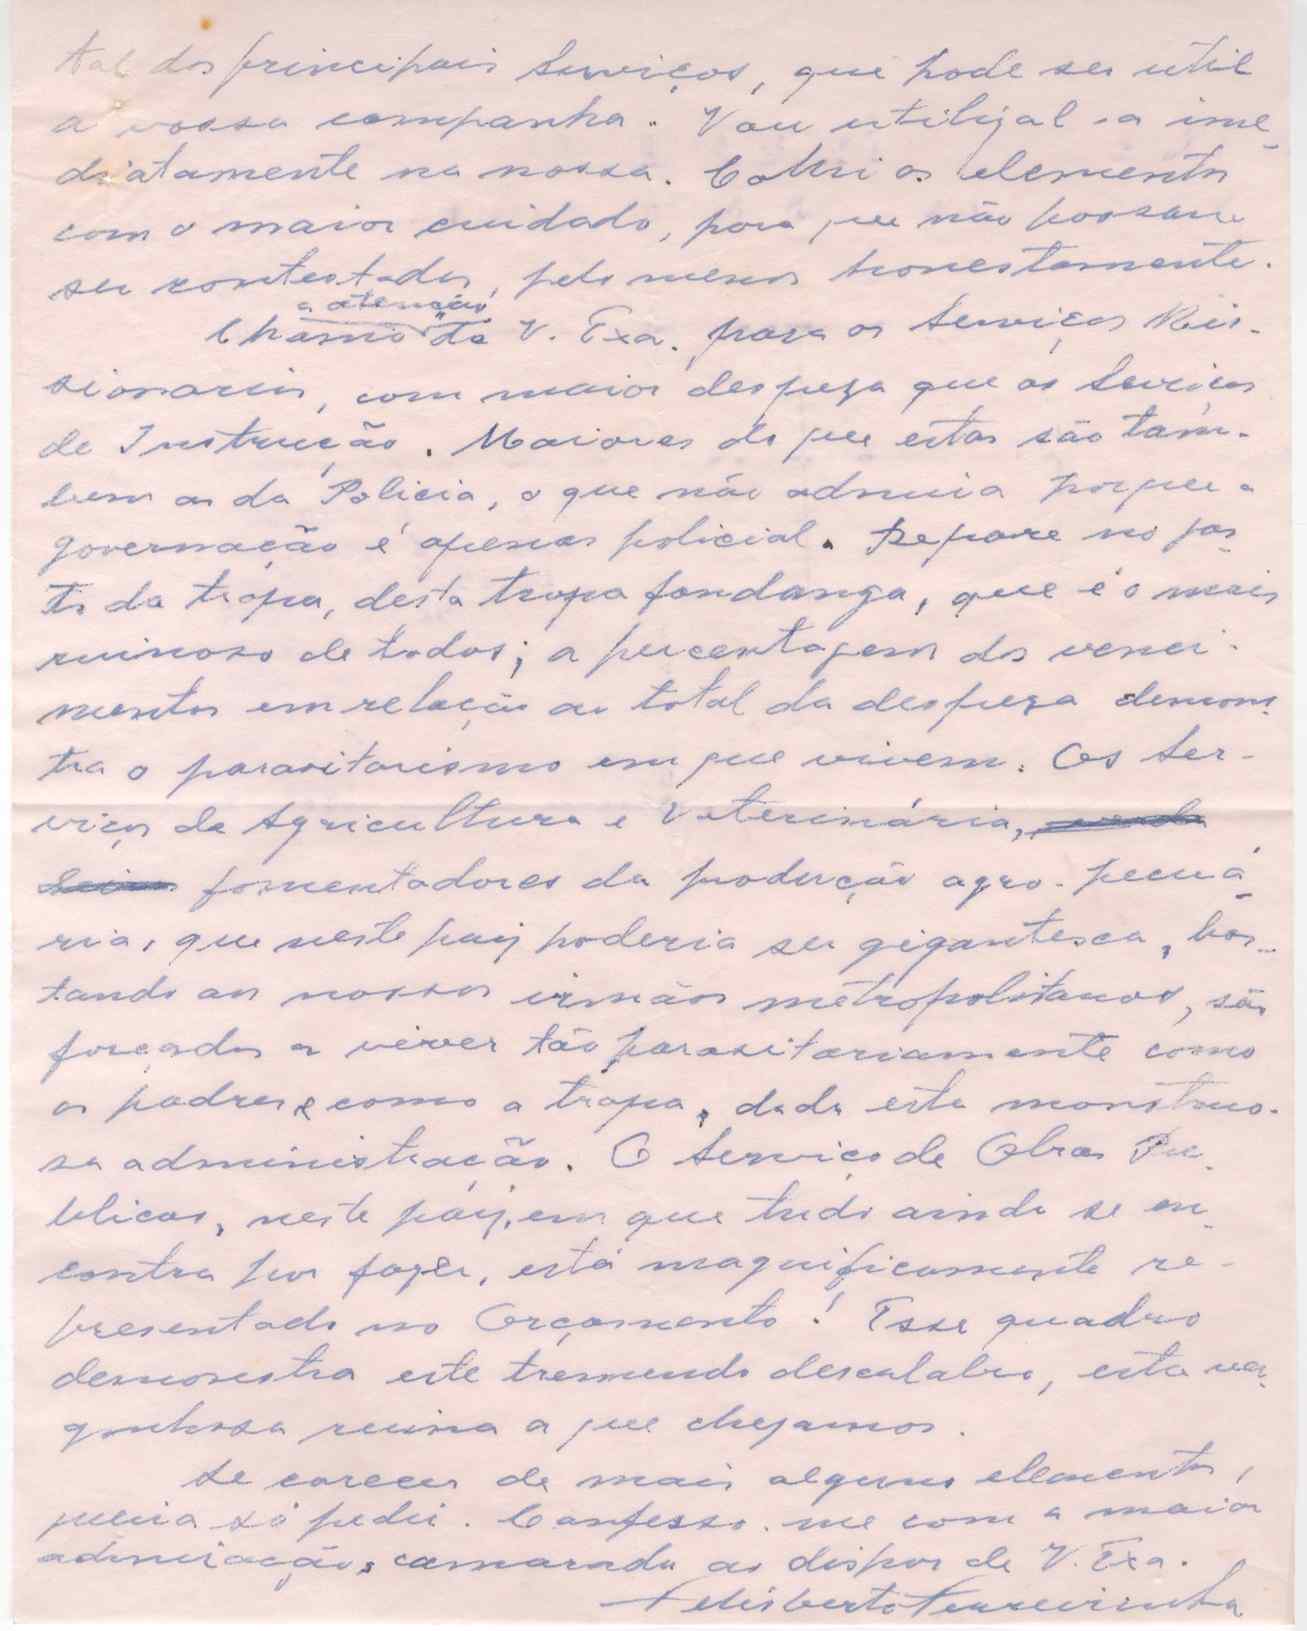 tal dos principais Serviços, que pode ser util
a vossa companha. Vou utilizal-a ime-
diatamente na nossa. Colhi os elementos
com o maior cuidado, para que não possam
ser contestados, pelo menos honestamente.
a atenção
Chamo de V. Exa. para os Serviços Mis-
sionarios, com maior despeza que os Serviços
de Instrução. Maiores do que estas são tam-
bem as da Policia, o que não admira porque a
governação é apenas policial. Repare no gas-
to da tropa, desta tropa fandanga, que é o mais
ruinoso de todos; a percentagem dos venci-
mentos em relação ao total da despeza demons-
tra o parasitarismo em que vivem. Os Ser-
viços de Agricultura e Veterinária,
fomentadores da produção agro-pecuá-
ria, que neste paiz poderia ser gigantesca, bas-
tando aos nossos irmãos metropolitanos, são
forçados a viver tão parasitariamente como
os padres e como a tropa, dada esta monstruo-
sa administração. O Serviço de Obras Pu-
blicas, neste páiz, em que tudo ainda se en-
contra por fazer, está magnificamente re-
presentado no Orçamento! Esse quadro
demonstra este tremendo descalabro, esta ver-
gonhosa ruina a que chegamos.
Se carecer de mais alguns elementos,
queira só pedir. Confesso-me com a maior
admiração, camarada ao dispor de V. Exa.
Felisberto Ferreirinha